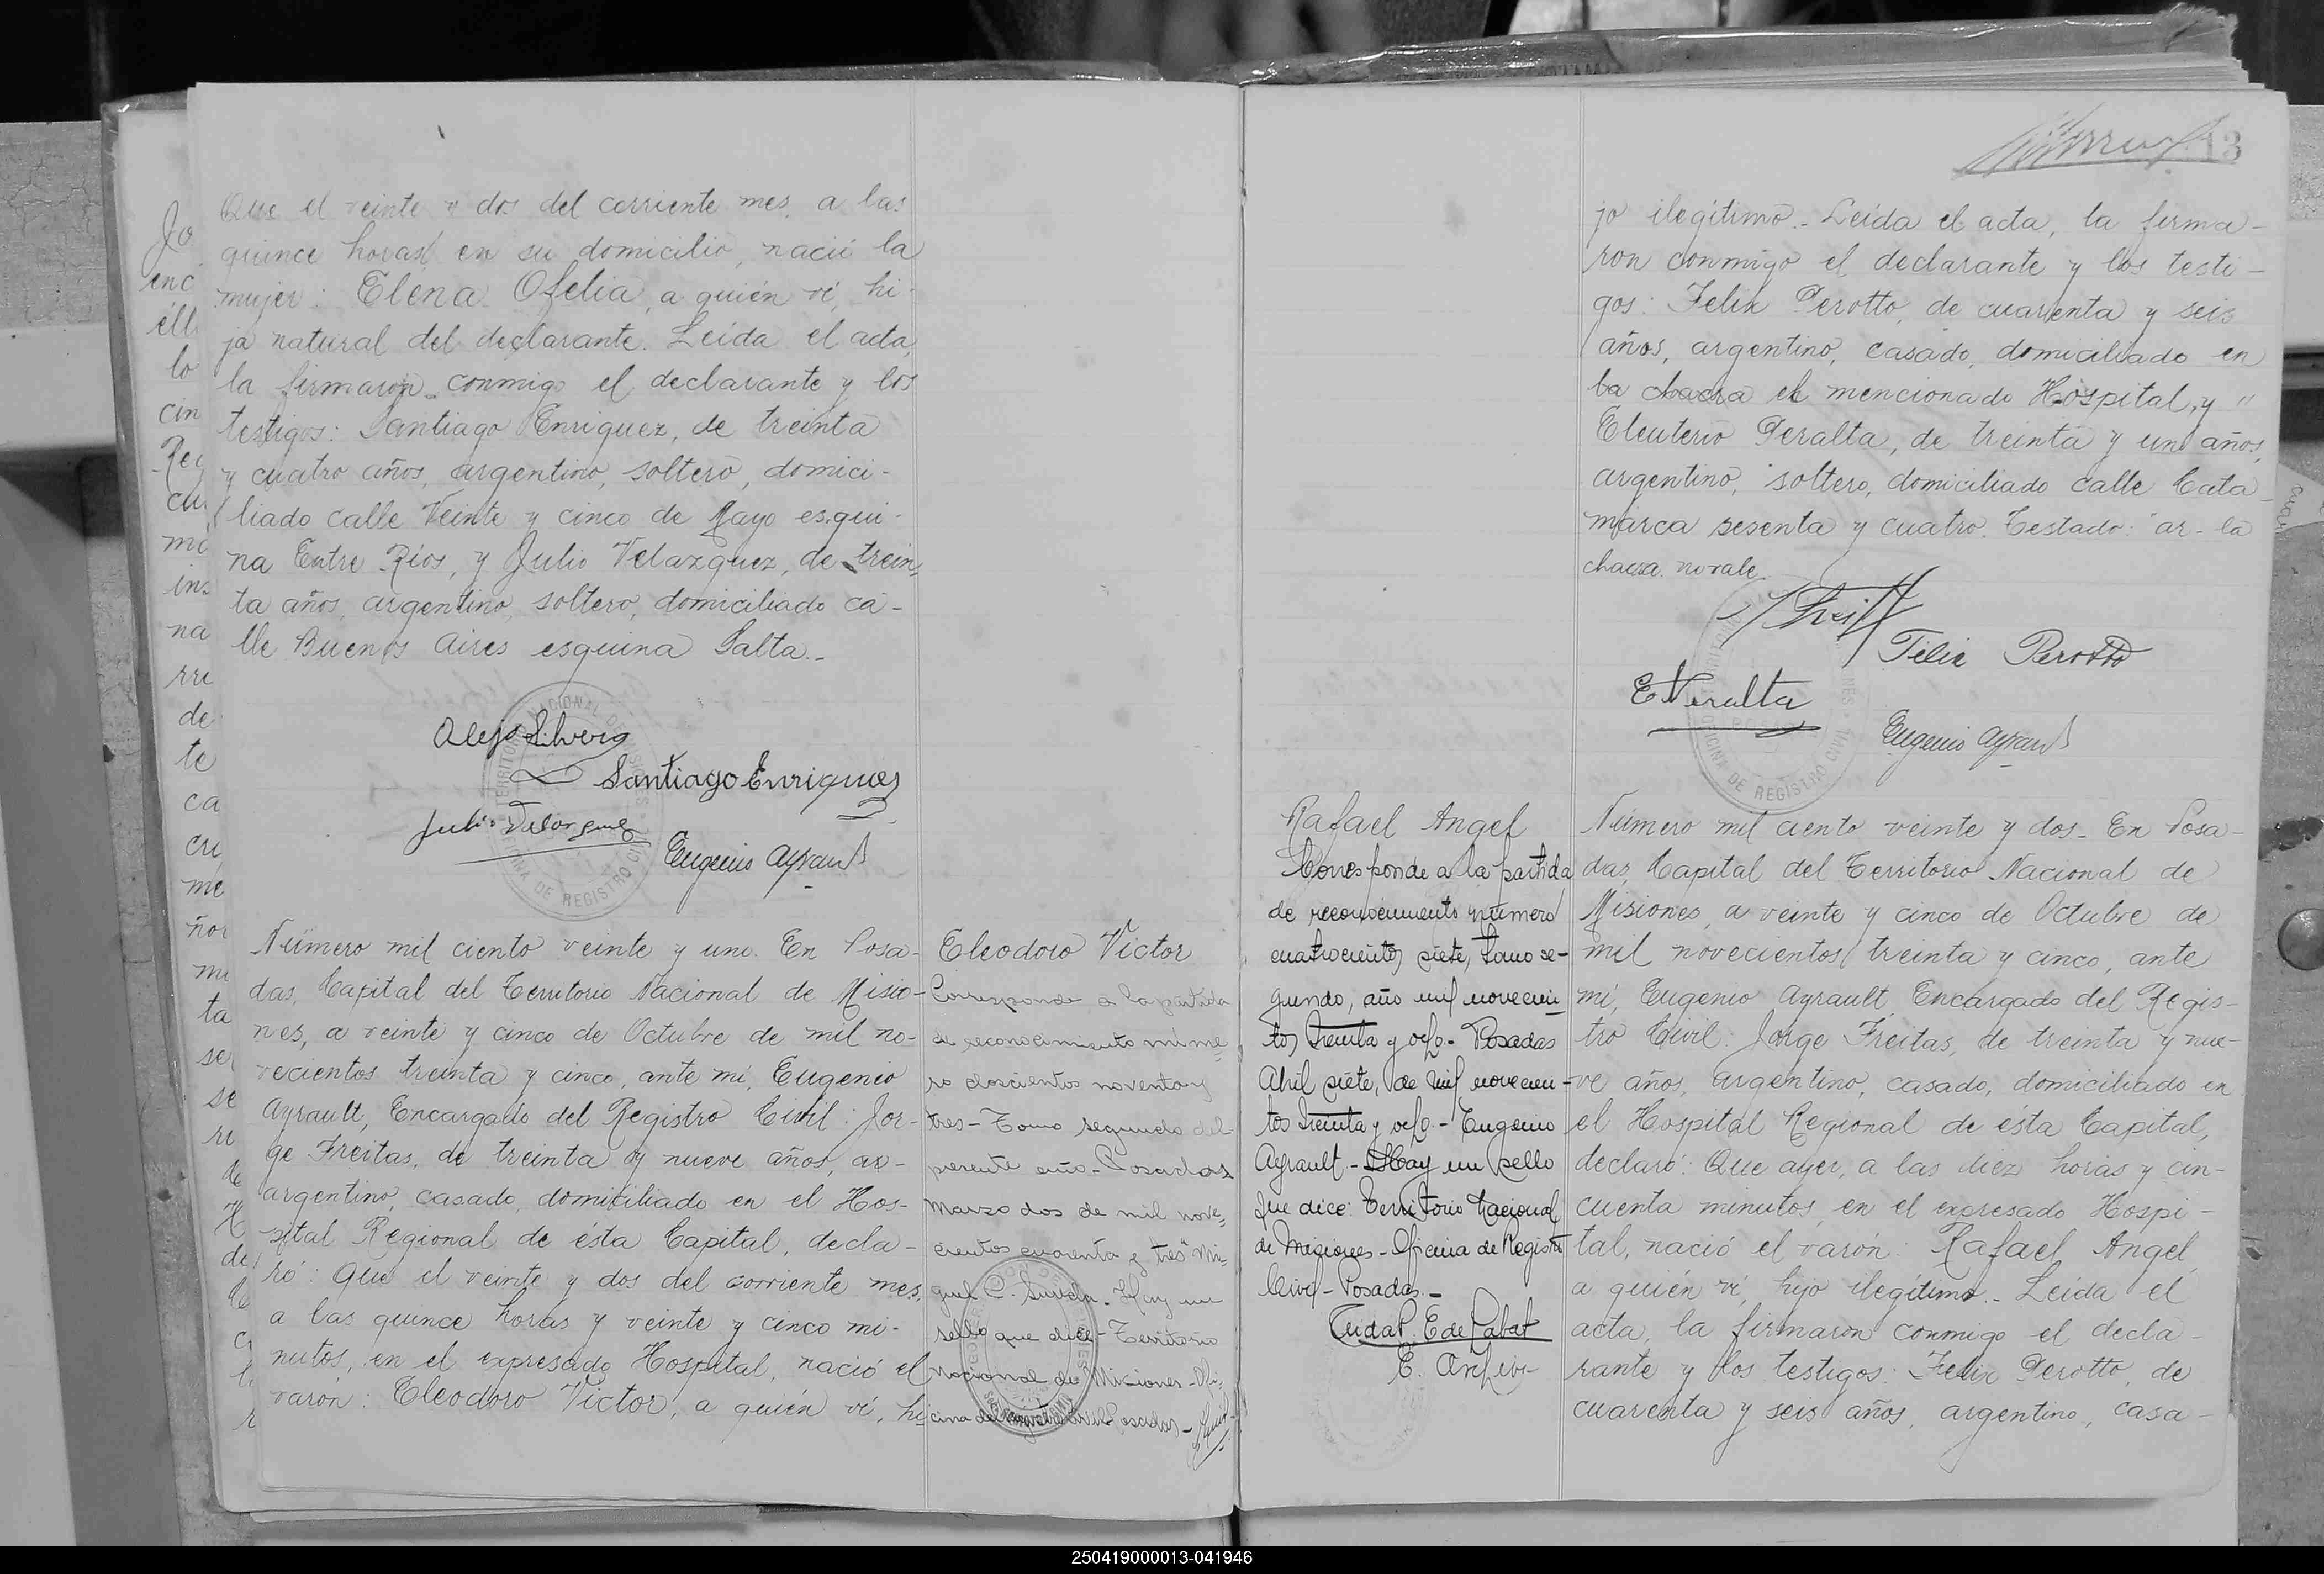 Que el veinte y dos del corriente mes, a las
quince horas, en su domicilio, nació la
mujer: Elena Ofelia, a quién ví, hi-
ja natural del declarante. Leida el acta,
la firmaron conmigo el declarante y los
testigos: Santiago Enriquez, de treinta
y cuatro años, argentino, soltero, domici-
liado calle Veinte y cinco de Mayo esqui-
na Entre Rios, y Julio Velazquez, de trein,
ta años, argentino, soltero, domiciliado ca-
lle Buenos Aires esquina Salta.-
Alejo Silveira
Santiago Enriquez
Julio Velazquez
Eugenio Ayrault
Número mil ciento veinte y uno. En Posa-
das, Capital del Territorio Nacional de Misio-
nes, a veinte y cinco de Octubre de mil no-
vecientos treinta y cinco, ante mí, Eugenio
Ayrault, Encargado del Registro Civil: Jor-
ge Freitas, de treinta y nueve años, ar-
argentino, casado, domiciliado en el Hos-
pital Regional de ésta Capital, decla-
ró: Que el veinte y dos del corriente mes,
a las quince horas y veinte y cinco mi-
nutos, en el expresado Hospital, nació el
varón: Eleodoro Victor, a quién ví, hi
Eleodoro Victor
Corresponde a la partida
de reconocimiento núme-
ro doscientos noventa y
tres - Tomo segundo del
presente año - Posadas
Marzo dos de mil nove-
cientos cuarenta y tres" Mi-
guel C. - Hay un
sello que dice - Territorio
Nacional de Misiones - Ofi-
cina del Registro Civil Posadas -
13
jo ilegítimo.- Leida el acta, la firma-
ron conmigo el declarante y los testi-
gos: Felix Perotto, de cuarenta y seis
años, argentino, casado, domiciliado en
la chacra el mencionado Hospital, y "
Eleuterio Peralta, de treinta y un años,
argentino, soltero, domiciliado calle Cata-
marca sesenta y cuatro. Testado: "ar- la
chacra no vale
Felix Perotto
E Peralta
Eugenio Ayrault
Rafael Angel
Corresponde a la partida
de reconocimiento número
cuatrocientos siete, tomo se-
gundo, año mil novecien
tos treinta y ocho.- Posadas
Abril siete, de mil novecien-
tos treinta y ocho.- Eugenio
Ayrault - Hay un sello
que dice: Territorio Nacional
de Misiones - Oficina de Registro
Civil - Posadas.-
Número mil ciento veinte y dos- En Posa-
das, Capital del Territorio Nacional de
Misiones, a veinte y cinco de Octubre de
mil novecientos treinta y cinco, ante
mí, Eugenio Ayrault, Encargado del Regis-
tro Civil: Jorge Freitas, de treinta y nue-
ve años, argentino, casado, domiciliado en
el Hospital Regional de ésta Capital,
declaró: Que ayer, a las diez horas y cin-
cuenta minutos, en el expresado Hospi-
tal, nació el varón: Rafael Angel,
a quién ví, hijo ilegítimo.- Leida el
acta, la firmaron conmigo el decla
rante y los testigos: Felix Perotto, de
cuarenta y seis años, argentino, casa-
250419000013-041946